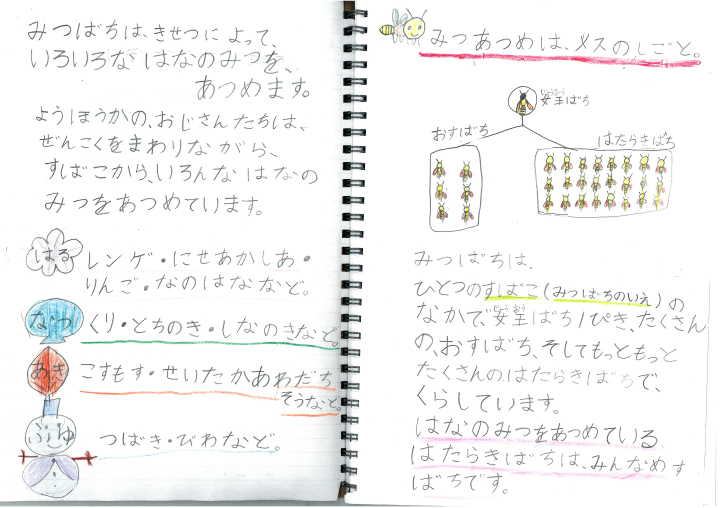 みつばちは、きせつによって、
いろいろなはなのみつを、
あつめます。
ようほうかの、おじさんたちは、
ぜんこくをまわりながら、
すばこから、いろんなはなの
みつをあつめています。
はる
レンゲ・にせあかしあ・
りんご・なのはななど。
なつ
くり・とちのき・しなのきなど。
あき
こすもす・せいたかあわだち
そうなど。
ふゆ
つばき・びわなど。
みつあつめは、メスのしごと。
女王ばち
おすばち
はたらきばち
みつばちは、
ひとつのすばこ(みつばちのいえ)の
なかで、女王ばち1ぴき、たくさん
の、おすばち、そしてもっともっと
たくさんの、はたらきばちで、
くらしています。
はなのみつをあつめている
はたらきばちは、みんなめす
ばちです。